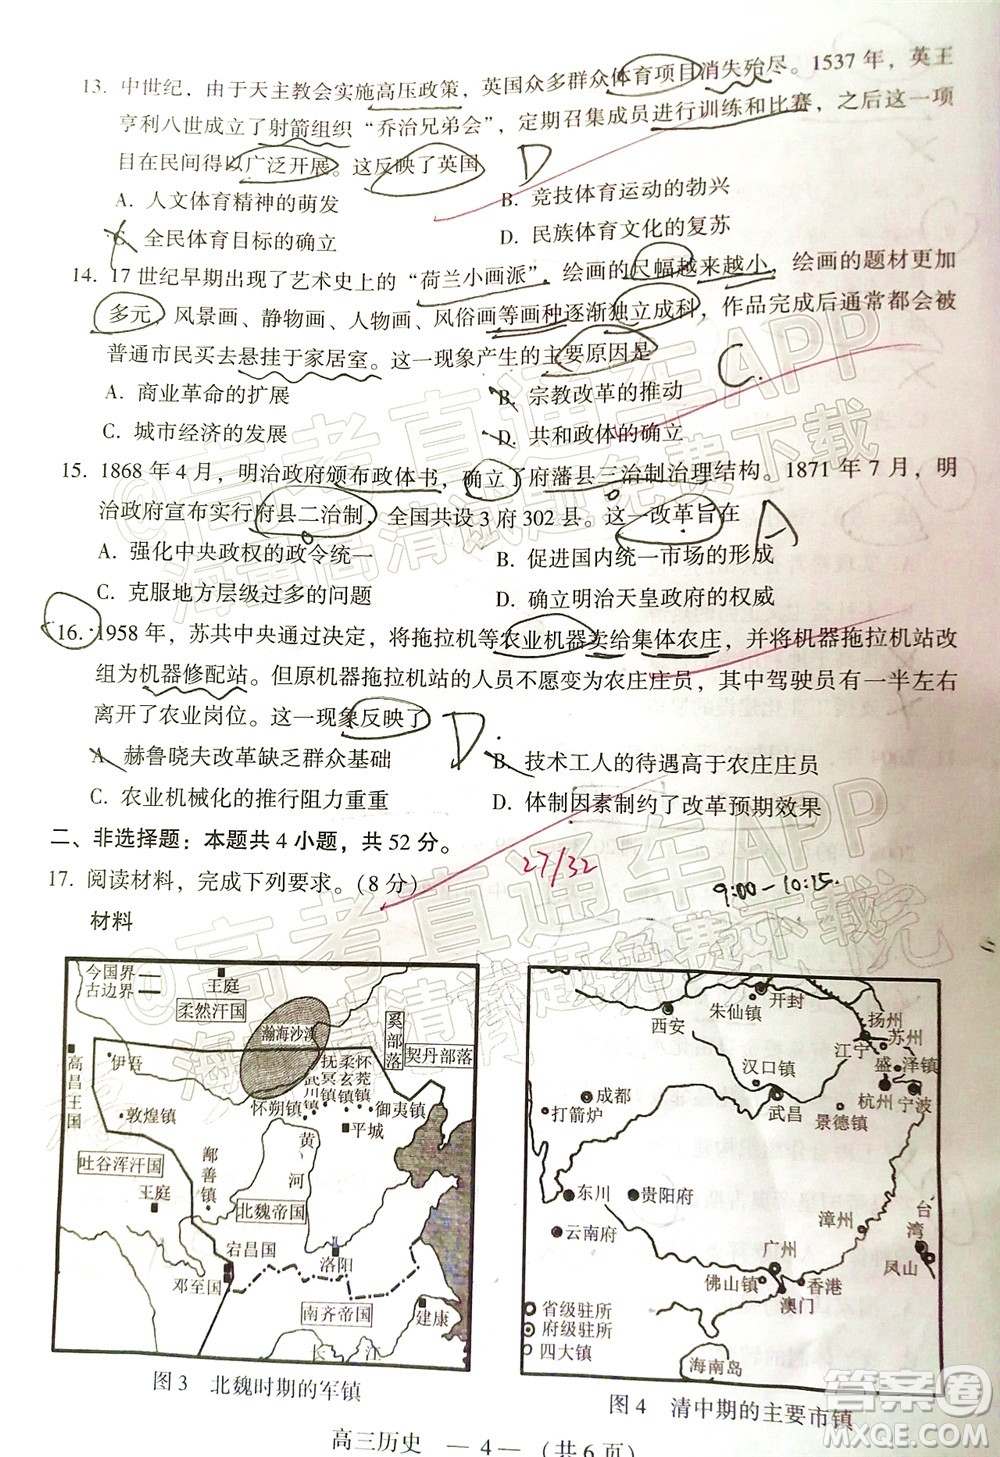 13. 中世纪，由于天主教会实施高压政策，英国众多群众体育项目消失殆尽。1537 年，英王
亨利八世成立了射箭组织“乔治兄弟会”，定期召集成员进行训练和比赛，之后这一项
目在民间得以广泛开展。这反映了英国 D
A. 人文体育精神的萌发 B. 竞技体育运动的勃兴
C. 全民体育目标的确立 D. 民族体育文化的复苏
14. 17 世纪早期出现了艺术史上的“荷兰小画派”，绘画的尺幅越来越小，绘画的题材更加
多元，风景画、静物画、人物画、风俗画等画种逐渐独立成科，作品完成后通常都会被
普通市民买去悬挂于家居室。这一现象产生的主要原因是 C.
A. 商业革命的扩展 B. 宗教改革的推动
C. 城市经济的发展 D. 共和政体的确立
15. 1868 年 4 月，明治政府颁布政体书，确立了府藩县三治制治理结构。1871 年 7 月，明
治政府宣布实行府县二治制，全国共设 3 府 302 县。这一改革旨在 A
A. 强化中央政权的政令统一 B. 促进国内统一市场的形成
C. 克服地方层级过多的问题 D. 确立明治天皇政府的权威
16. 1958 年，苏共中央通过决定，将拖拉机等农业机器卖给集体农庄，并将机器拖拉机站改
组为机器修配站。但原机器拖拉机站的人员不愿变为农庄庄员，其中驾驶员有一半左右
离开了农业岗位。这一现象反映了 D
A. 赫鲁晓夫改革缺乏群众基础 B. 技术工人的待遇高于农庄庄员
C. 农业机械化的推行阻力重重 D. 体制因素制约了改革预期效果
二、非选择题：本题共 4 小题，共 52 分。
27/32
17. 阅读材料，完成下列要求。（8 分）
9:00-10:15.
材料
今国界
古边界
王庭
柔然汗国
瀚海沙漠
奚部落
契丹部落
高昌王国
伊吾
敦煌镇
怀朔镇
武川镇
抚冥镇
柔玄镇
怀荒镇
御夷镇
平城
吐谷浑汗国
王庭
鄯善镇
黄河
北魏帝国
宕昌国
邓至国
洛阳
南齐帝国
建康
长江
图 3 北魏时期的军镇
西安
朱仙镇
开封
扬州
江宁
苏州
盛泽镇
汉口镇
成都
打箭炉
武昌
景德镇
杭州
宁波
东川
贵阳府
云南府
漳州
台湾
凤山
广州
佛山镇
香港
澳门
省级驻所
府级驻所
四大镇
海南岛
图 4 清中期的主要市镇
高三历史 — 4 — （共 6 页）
@高考直通车APP
海量高清试题免费下载
@高考直通车APP
海量高清试题免费下载
答案圈
MXQE.COM